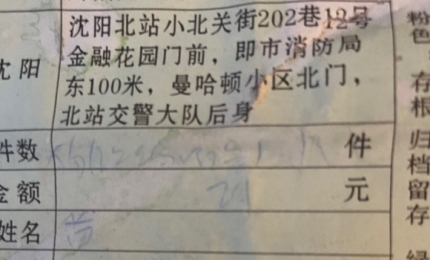 沈阳北站小北关街202巷12号
金融花园门前，即市消防局
沈阳 东100米，曼哈顿小区北门，
北站交警大队后身
件数 件
金额 元
姓名
粉
色
存
根
归
档
留
存